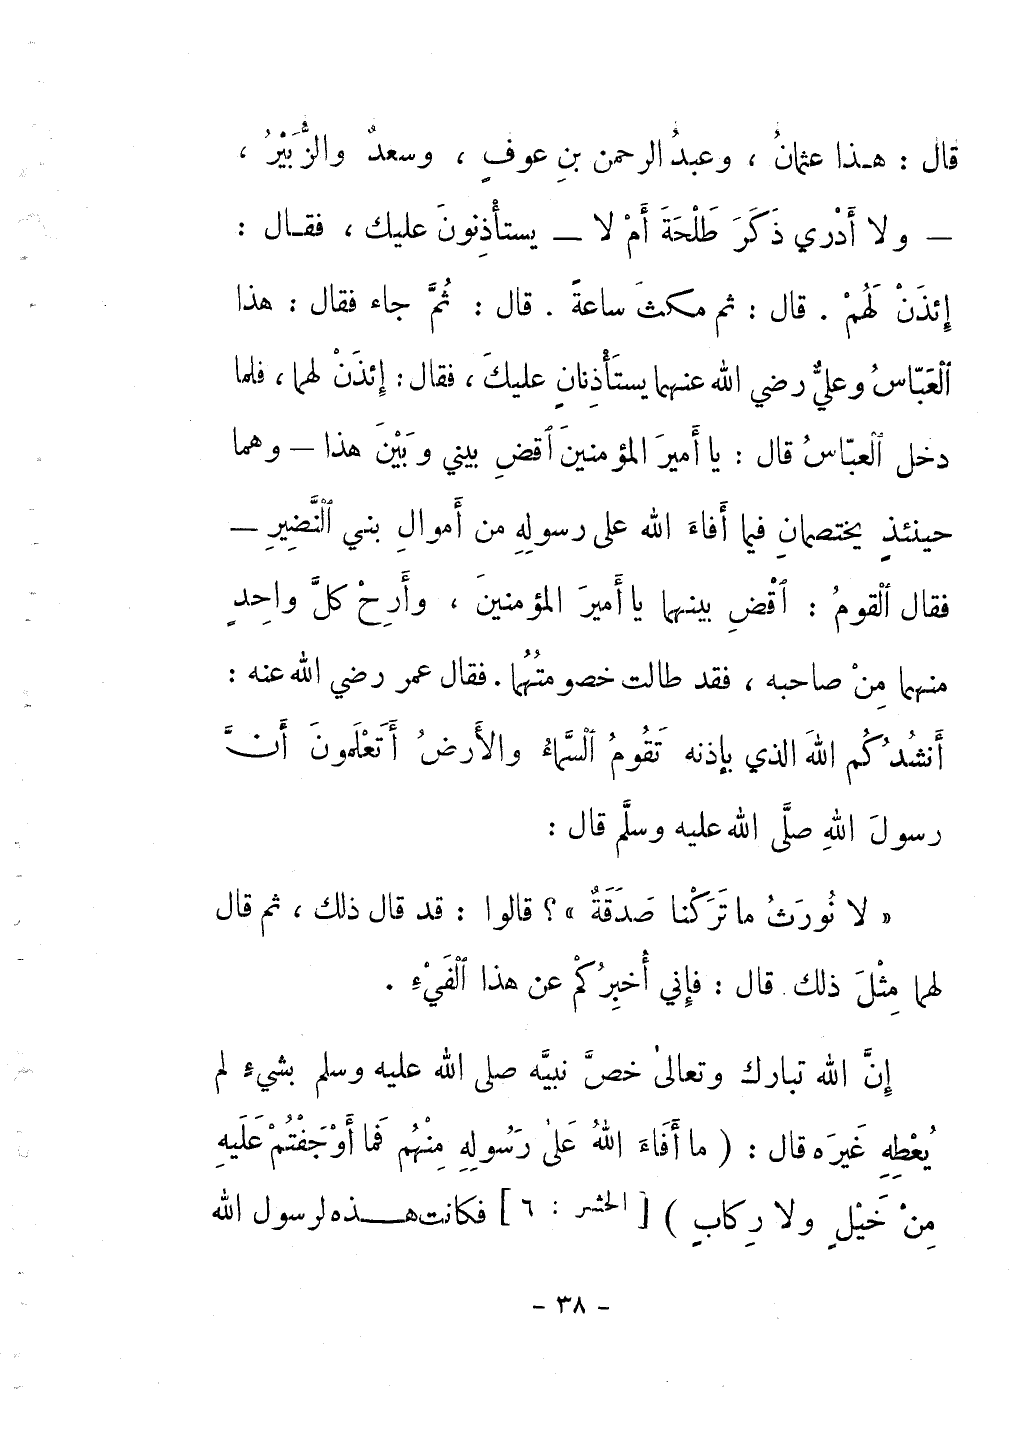 قال : هـذا عثمانُ ، وعبدُ الرحمن بنِ عوفٍ ، وسعدٌ والزُّبَيْرُ ،
— ولا أَدْري ذَكَرَ طَلْحَةَ أَمْ لا — يستأْذِنونَ عليك ، فقـال :
إِئذَنْ لَهُمْ . قال : ثم مكثَ ساعةً . قال : ثُمَّ جاء فقال : هذا
ٱلْعَبّاسُ وعليٌّ رضي الله عنهما يستَأْذِنانِ عليكَ ، فقال : إِئذَنْ لهما ، فلما
دخل ٱلْعبّاسُ قال : يا أَميرَ المؤمنينَ ٱقضِ بيني وبَيْنَ هذا — وهما
حينئذٍ يختصمانِ فيما أَفاءَ الله على رسولِهِ من أَموالِ بني ٱلنَّضِيرِ —
فقال ٱلْقومُ : ٱقْضِ بينهما يا أَميرَ المؤمنينَ ، وأَرِحْ كلَّ واحِدٍ
منهما مِنْ صاحبه ، فقد طالت خصومتُهُما . فقال عمر رضي الله عنه :
أَنشُدُكُم اللهَ الذي بإذنه تَقُومُ ٱلسَّماءُ والأَرضُ أَتَعْلَمونَ أَنَّ
رسولَ اللهِ صلَّى الله عليه وسلَّم قال :
« لا نُورَثُ ما تَرَكْنا صَدَقَةٌ » ؟ قالوا : قد قال ذلك ، ثم قال
لهما مِثْلَ ذلك . قال : فإِني أُخبِرُكمْ عن هذا ٱلْفَيْءِ .
إِنَّ الله تبارك وتعالىٰ خصَّ نبيَّه صلى الله عليه وسلم بشيءٍ لم
يُعْطِهِ غَيرَه قال : ( ما أَفَاءَ اللهُ عَلىٰ رَسُولِهِ مِنْهُم فَما أَوْجَفْتُمْ عَلَيهِ
مِنْ خَيْلٍ ولا رِكابٍ ) [ الحشر : ٦ ] فكانت هـذه لرسول الله
- ٣٨ -